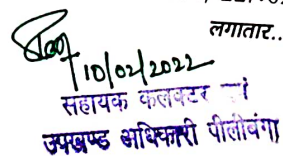 लगातार..
10/02/2022
सहायक कलक्टर
उपखण्ड अधिकारी पीलीबंगा